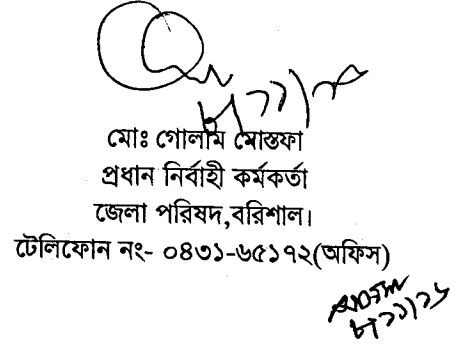 মোঃ গোলাম মোস্তফা
প্রধান নির্বাহী কর্মকর্তা
জেলা পরিষদ,বরিশাল।
টেলিফোন নং- ০৪৩১-৬৫১৭২(অফিস)